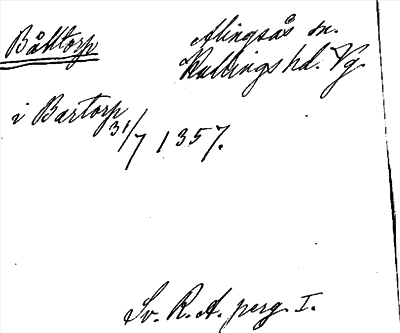 Båltorp
Alingsås sn.
Kullings hd. Vg.
i Bartorp
31/7 1357.
Sv. R. A. perg. I.